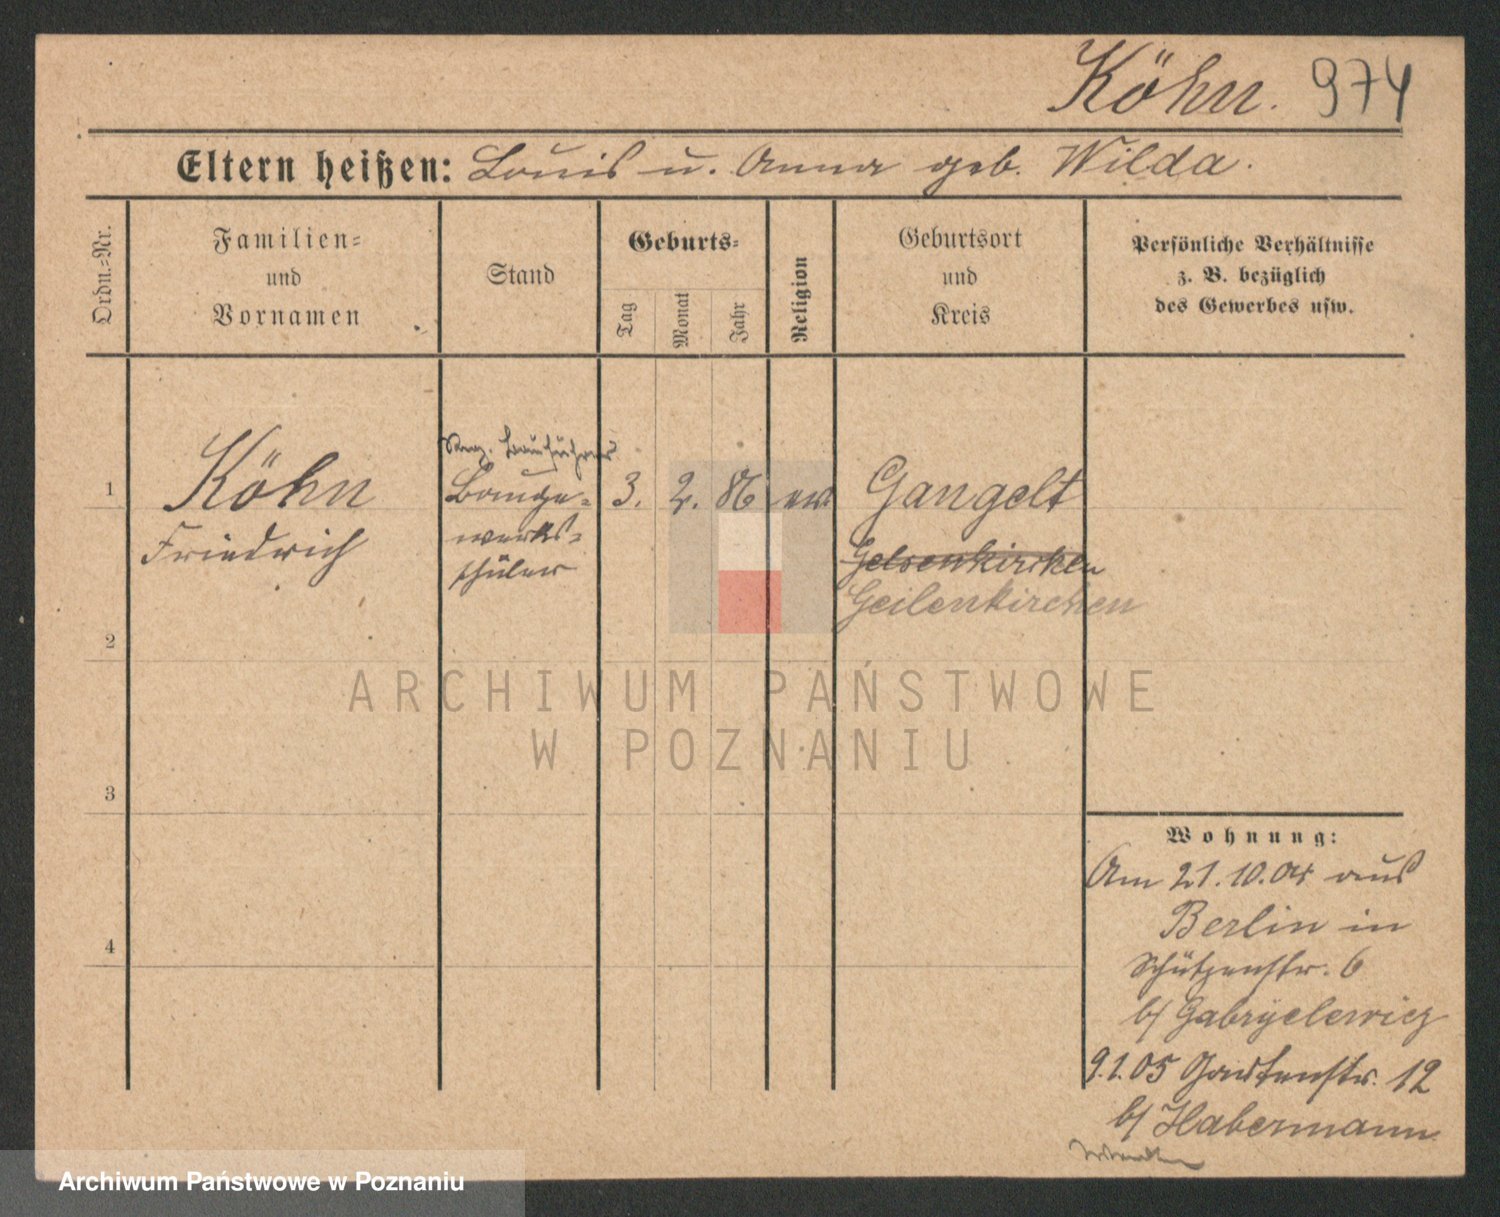 Köhn. 974
Eltern heißen: Louis u. Anna geb. Wilda.
Ordn.-Nr.
Familien-
und
Vornamen
Stand
Geburts-
Tag
Monat
Jahr
Religion
Geburtsort
und
Kreis
Persönliche Verhältnisse
z. B. bezüglich
des Gewerbes usw.
Bauführer
1 Köhn Bauge- 3. 2. 86 ev. Gangelt
Friedrich werks- Gelsenkirchen
schüler Geilenkirchen
2
ARCHIWUM PAŃSTWOWE
W POZNANIU
3
Wohnung:
Am 21.10.04 aus
Berlin in
4
Schützenstr. 6
b/ Gabryelewicz
9.1.05 Gartenstr. 12
b/ Habermann
Archiwum Państwowe w Poznaniu